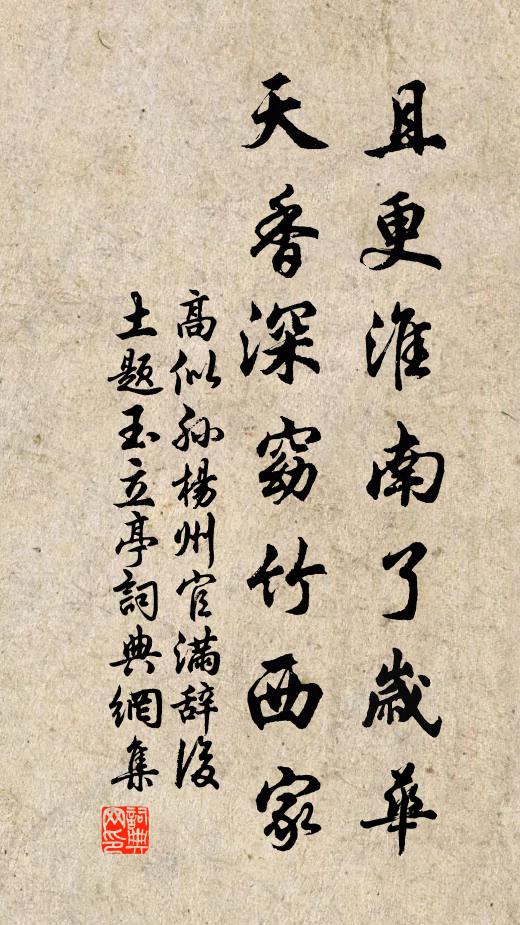 且更淮南了歲華
天香深窈竹西家
高似孫楊州官滿辭後
土題玉立亭詞典網集
詞典
网印